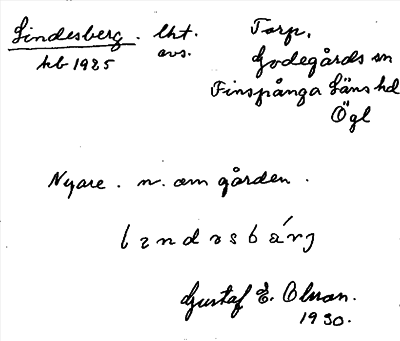 Lindesberg. lht. Torp.
hb 1925 avs. Godegårds sn
Finspånga Läns hd
Ögl
Nyare. n. om gården.
Gustaf E. Olsson.
1930.